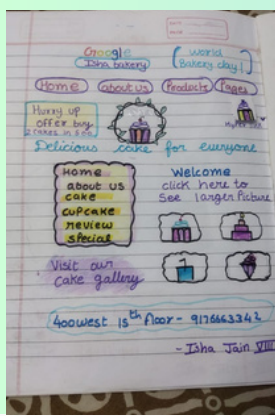 Google
Isha bakery
World
Bakery day!
Home
about us
Products
Pages
Hurry up
offer buy
2 cakes in 500
Delicious cake for everyone
Home
about us
cake
cupcake
review
special
Welcome
click here to
see larger Picture
Visit our
cake gallery
400west 15th floor - 9176663342
- Isha Jain VIII